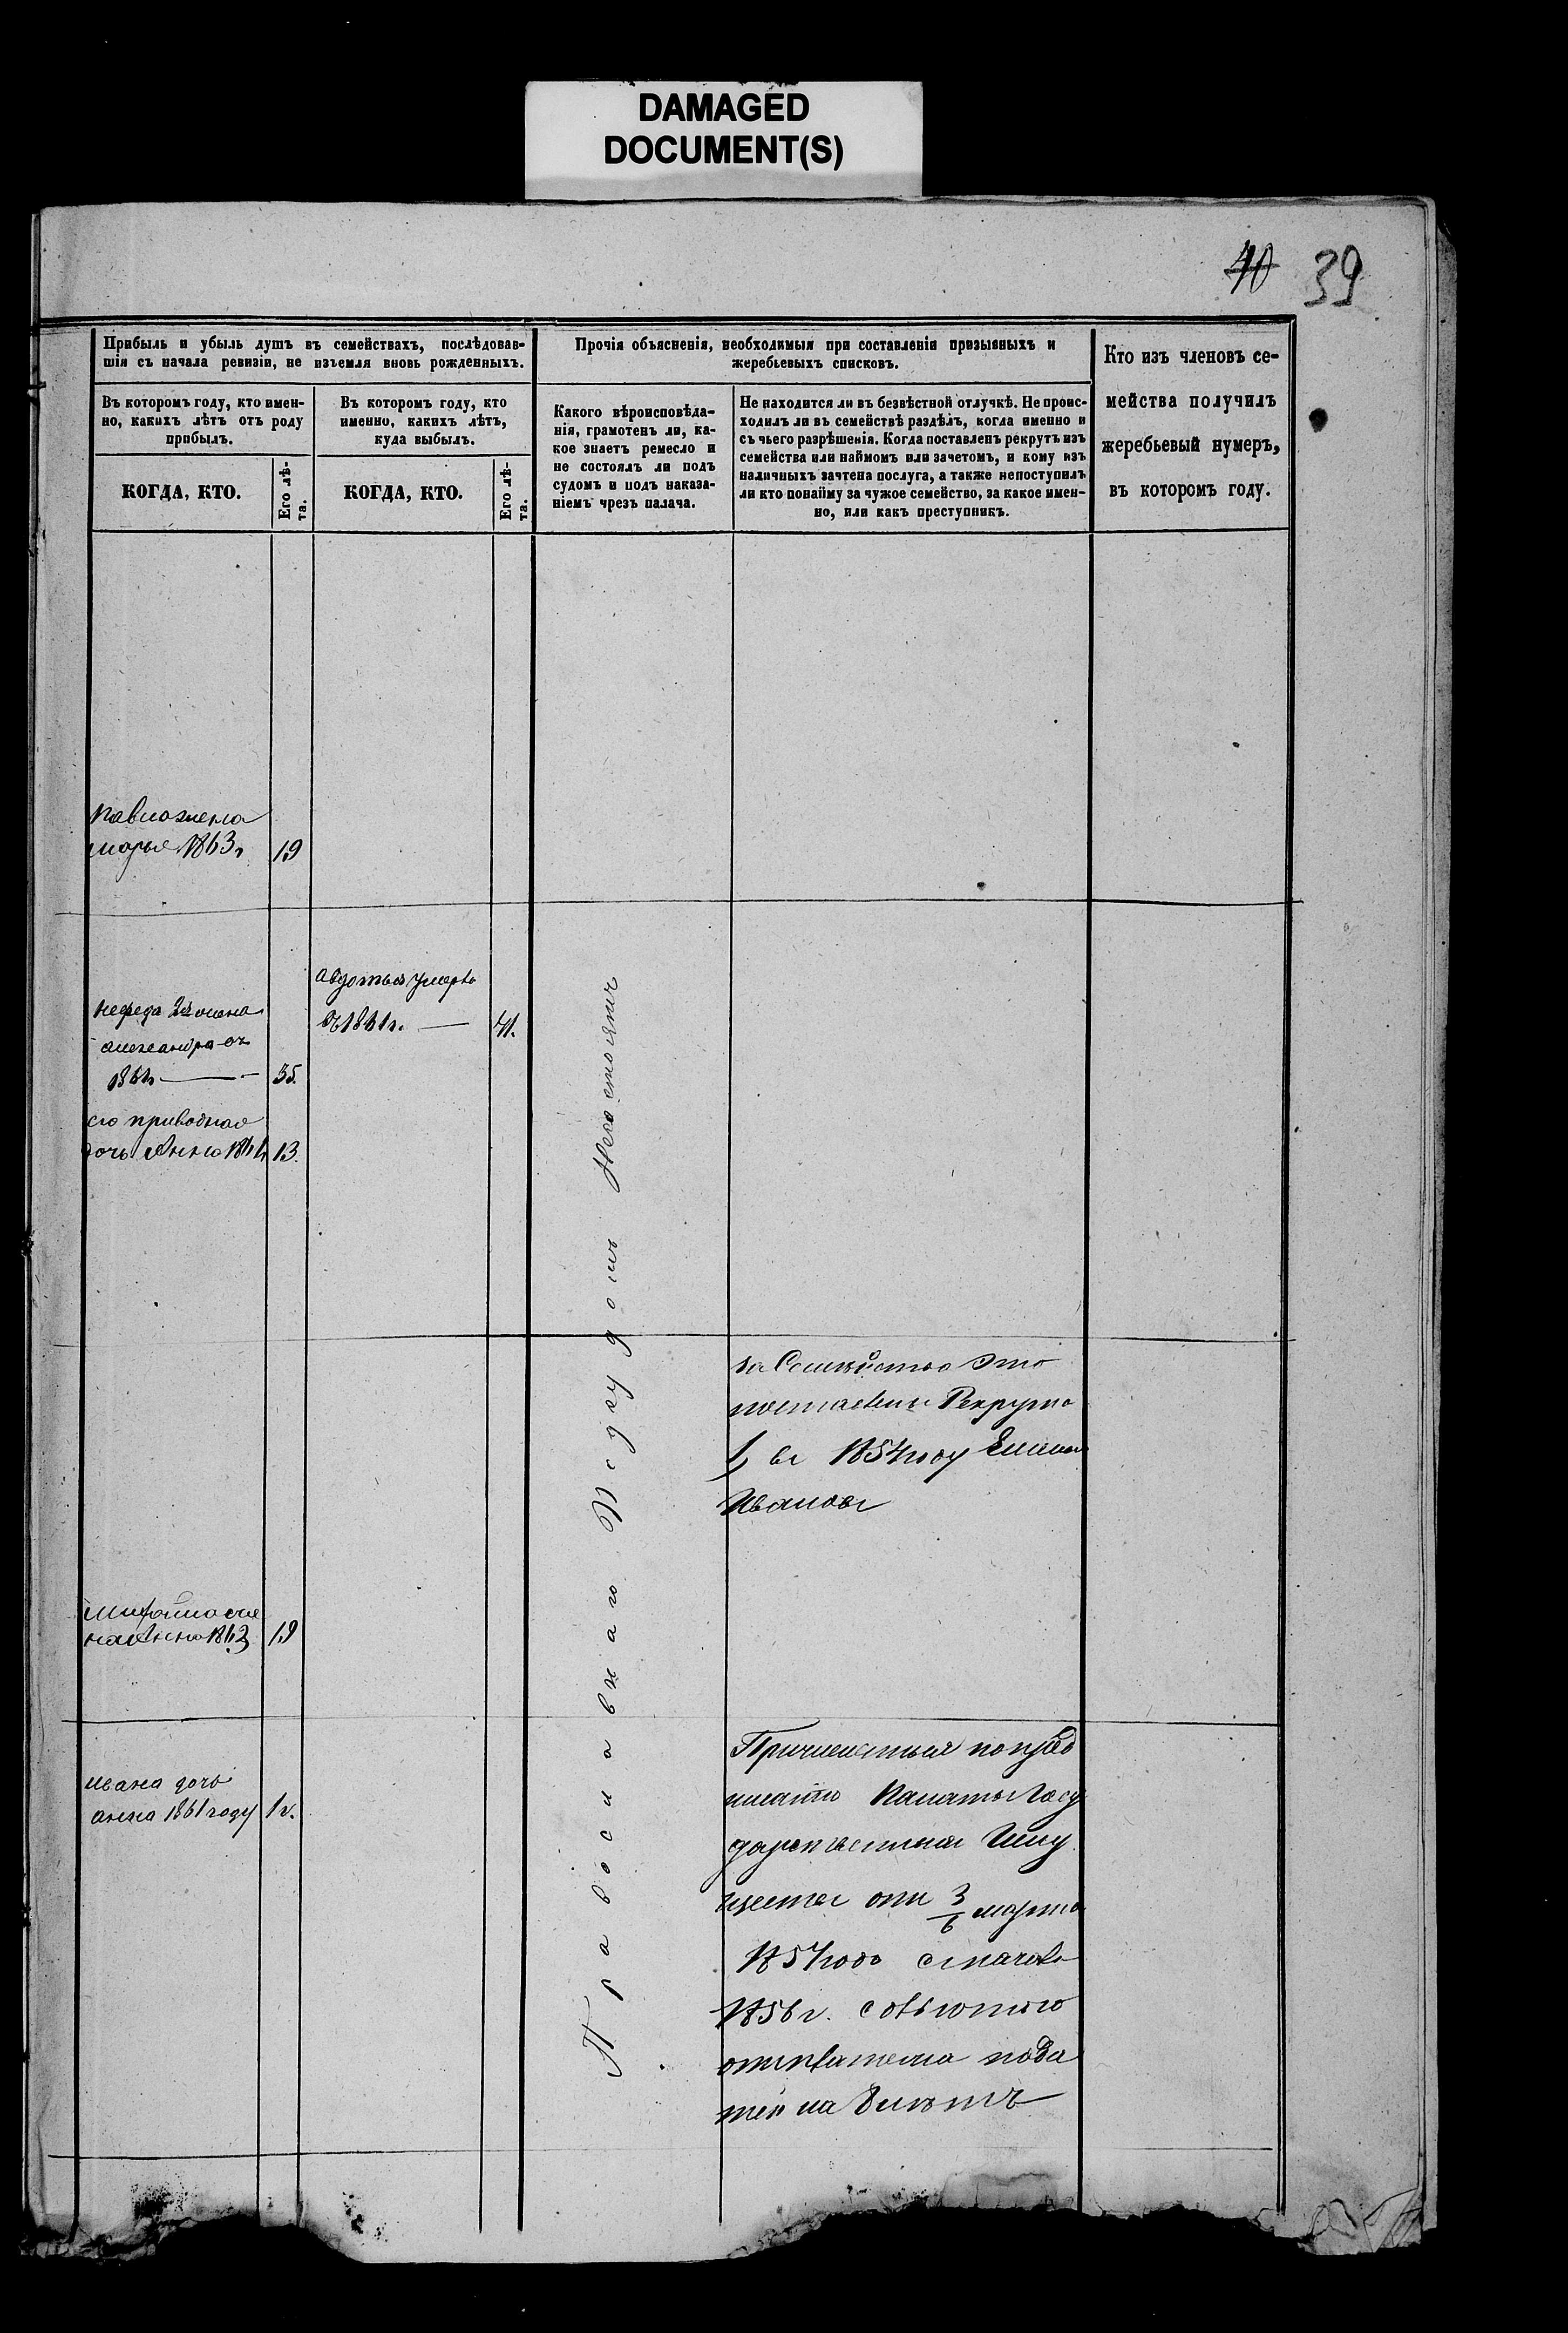 DAMAGED
DOCUMENT(S)
40 39
Прибыль и убыль душъ въ семействахъ, послѣдовав-
шія съ начала ревизіи, не изъемля вновь рожденныхъ.
Прочія объясненія, необходимыя при составленіи призывныхъ и
жеребьевыхъ списковъ.
Кто изъ членовъ се-
мейства получилъ
жеребьевый нумеръ,
въ которомъ году.
Въ которомъ году, кто имен-
но, какихъ лѣтъ отъ роду
прибылъ.
Въ которомъ году, кто
именно, какихъ лѣтъ,
куда выбылъ.
Какого вѣроисповѣда-
нія, грамотенъ ли, ка-
кое знаетъ ремесло и
не состоялъ ли подъ
судомъ и подъ наказа-
ніемъ чрезъ палача.
Не находится ли въ безвѣстной отлучкѣ. Не проис-
ходилъ ли въ семействѣ раздѣлъ, когда именно и
съ чьего разрѣшенія. Когда поставленъ рекрутъ изъ
семейства или наймомъ или зачетомъ, и кому изъ
наличныхъ зачтена послуга, а также непоступилъ
ли кто понайму за чужое семейство, за какое имен-
но, или какъ преступникъ.
КОГДА, КТО.
Его лѣ-
та.
КОГДА, КТО.
Его лѣ-
та.
павла жена
марья 1863г 19
авдотья умерла
41.
александра
35.
его приводная
дочь Анна 13.
Православнаго Подсудомъ Несостоялъ
за Семейство Это
поставленъ Рекрутъ
1, въ 1854 году
Ивановъ
жена
Анна 1863 19
ивана дочь
анна 1861 году 1 г.
Причисленные по пред
писанію Палаты Госу
дарственныхъ Иму
ществъ отъ 3/6 марта
1857 года сначала
1856 г.
пода
тей на